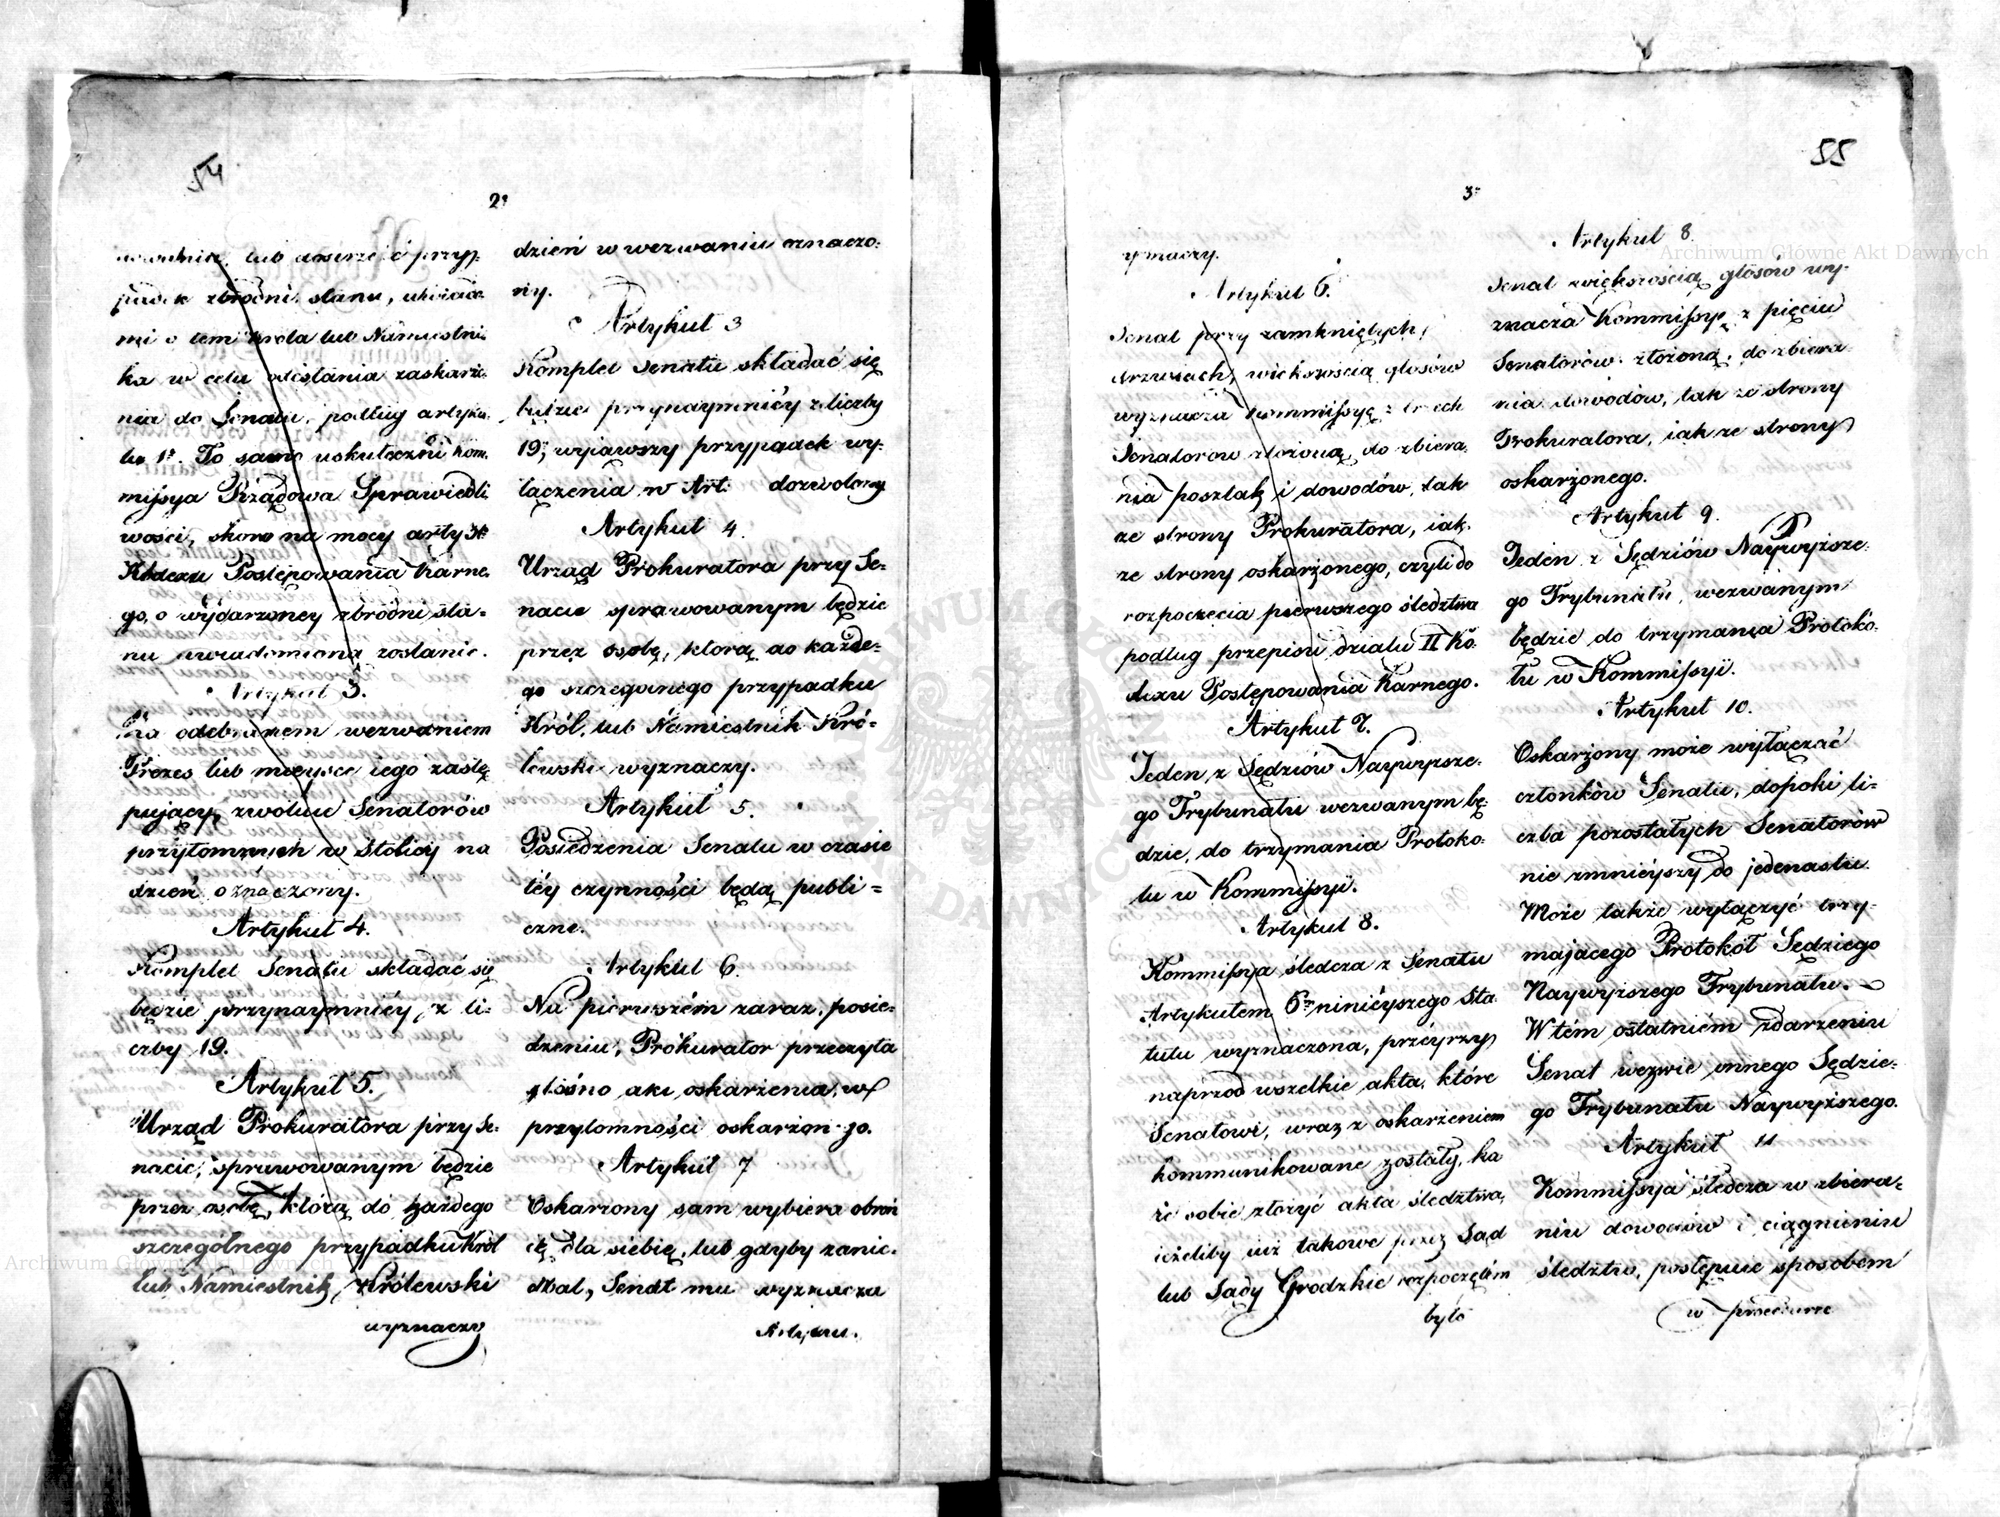 54
2.
lub donieść o przyp.
padek zbrodni stanu, uwiado
mi o tem Króla lub Namiestni
ka w celu odesłania zaskarże
nia do Senatu, podług artyku
łu 1º. To samo uskuteczni Kom.
missya Rządowa Sprawiedli
wości, skoro na mocy arty
Kodexu Postępowania Karne.
go, o wydarzoney zbrodni sta-
nu uwiadomiona zostanie.
Artykuł 3.
Za odebranem wezwaniem
Prezes lub mieysce iego zastę
pujący, zwołuie Senatorów
przytomnych w Stolicy na
dzień oznaczony.
Artykuł 4.
Komplet Senatu składać się
będzie przynaymniéy, z li-
czby 19.
Artykuł 5.
Urząd Prokuratora przy Se-
nacie, sprawowanym będzie
przez osobę, którą do każdego
szczególnego przypadku Król
lub Namiestnik Królewski
wyznaczy
dzień w wezwaniu oznaczo:
ny.
Artykuł 3
Komplet Senatu składać się
będzie przynaymniéy z liczby
19; wyjąwszy przypadek wy-
łączenia w Art: dozwolony
Artykuł 4.
Urząd Prokuratora przy Se-
nacie sprawowanym będzie
przez osobę, którą do każde-
go szczególnego przypadku
Król, lub Namiestnik Kró-
lewski wyznaczy.
Artykuł 5.
Posiedzenia Senatu w czasie
téy czynności będą publi=
czne.
Artykuł 6.
Na pierwszém zaraz posie-
dzeniu, Prokurator przeczyta
głośno akt oskarżenia, w
przytomności oskarżonego.
Artykuł 7
Oskarżony sam wybiera obroń
cę dla siebie, lub gdyby zanie-
dbał, Senat mu wyznacza
Artyku.
55
3.
wyznaczy.
Artykuł 6.
Senat przy zamkniętych
drzwiach, większością głosów
wyznacza Kommissyę z trzech
Senatorów złożoną, do zbiera
nia poszlak i dowodów, tak
ze strony Prokuratora, iak
ze strony oskarżonego, czyli do
rozpoczęcia pierwszego śledztwa
podług przepisu działu II Ko
dexu Postępowania Karnego.
Artykuł 7.
Jeden z Sędziów Naywyższe-
go Trybunału wezwanym bę-
dzie, do trzymania Protoko-
łu w Kommissyi.
Artykuł 8.
Kommissya śledcza z Senatu
Artykułem 6tym ninieyszego Sta
tutu wyznaczona, przéyrzy
naprzód wszelkie akta, które
Senatowi, wraz z oskarżeniem
kommunikowane zostały, ka
że sobie złożyć akta śledztwa,
ieżeliby iuż takowe przez Sąd
lub Sądy Grodzkie rozpoczętém
było
Artykuł 8.
Senat większością głosów wy-
znacza Kommissyę z pięciu
Senatorów złożoną, do zbiera
nia dowodów, tak ze strony
Prokuratora, iak ze strony
oskarżonego.
Artykuł 9.
Jeden z Sędziów Naywyższe-
go Trybunału, wezwanym
będzie do trzymania Protoko-
łu w Kommissyi.
Artykuł 10.
Oskarżony może wyłączać
członków Senatu, dopóki li-
czba pozostałych Senatorów
nie zmnieyszy do jedenastu.
Może także wyłączyć trzy-
mającego Protokół Sędziego
Naywyższego Trybunału.
W tém ostatniém zdarzeniu
Senat wezwie innego Sędzie-
go Trybunału Naywyższego.
Artykuł 11
Kommissya śledcza w zbiera-
niu dowodów i ciągnieniu
śledztw, postępuie sposobem
w procedurze
Archiwum Główne Akt Dawnych
Archiwum Główne Akt Dawnych